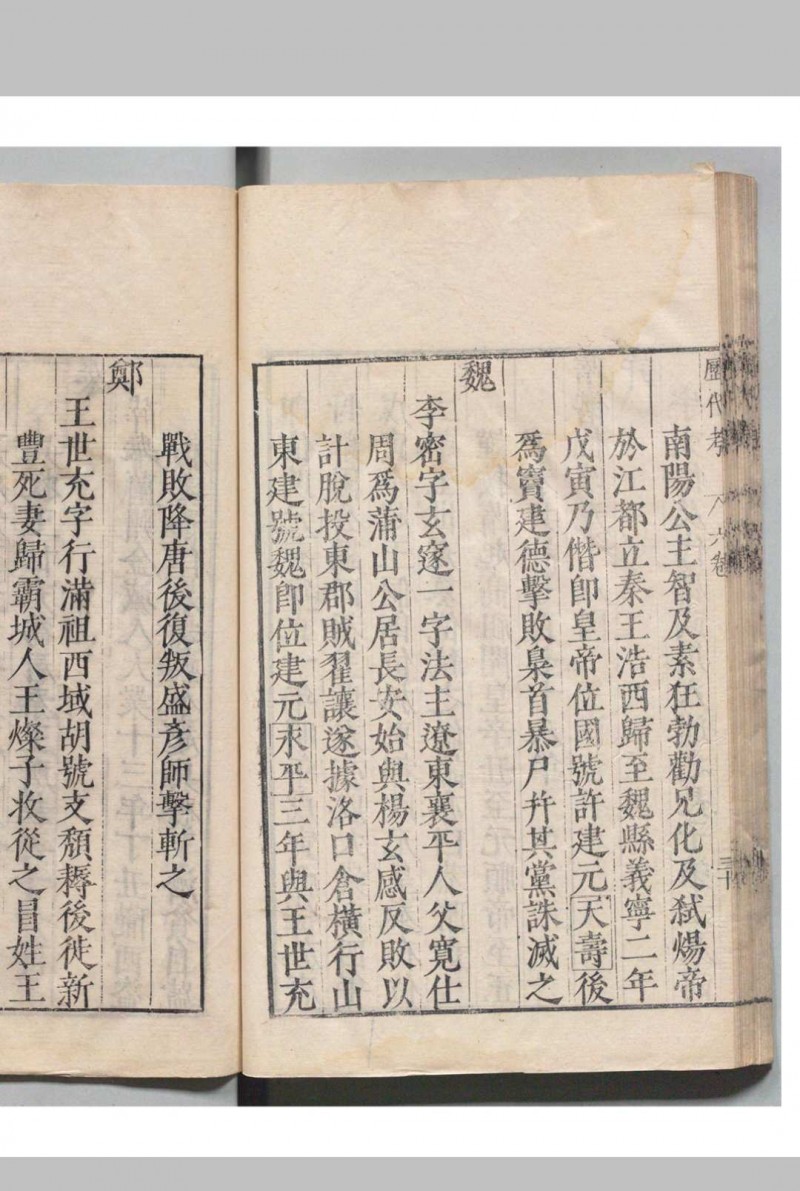 歷代考 六卷
三十
南陽公主智及素狂勃勸兄化及弒煬帝
於江都立秦王浩西歸至魏縣義寧二年
戊寅乃僭卽皇帝位國號許建元天壽後
爲竇建德擊敗梟首暴尸幷其黨誅滅之
魏
李密字玄邃一字法主遼東襄平人父寬仕
周爲蒲山公居長安始與楊玄感反敗以
計脫投東郡賊翟讓遂據洛口倉橫行山
東建號魏卽位建元永平三年與王世充
戰敗降唐後復叛盛彥師擊斬之
鄭
王世充字行滿祖西域胡號支頹耨後徙新
豐死妻歸霸城人王燦子收從之冒姓王